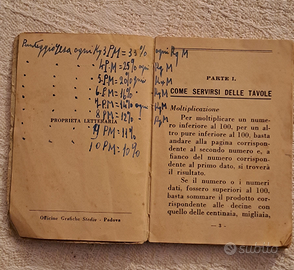 Punteggio resa ogni Kg 3 PM = 33% ogni Kg M
4 PM = 25% ogni Kg M
5 PM = 20% ogni Kg M
6 PM = 16% Kg M
7 PM = 14% ogni Kg M
8 PM = 12% Kg M
9 PM = 11% Kg M
10 PM = 10%
PROPRIETÀ
Officine Grafiche Stedie - Padova
PARTE I.
COME SERVIRSI DELLE TAVOLE
Moltiplicazione
Per moltiplicare un numero
inferiore al 100, per un al-
tro pure inferiore al 100, basta
andare alla pagina corrispon-
dente al secondo numero e, a
fianco del numero corrispon-
dente al primo dato, si troverà
il risultato.
Se il numero o i numeri
dati, fossero superiori al 100,
basta sommare il prodotto cor-
rispondente alle decine con
quello delle centinaia, migliaia,
- 3 -
subito